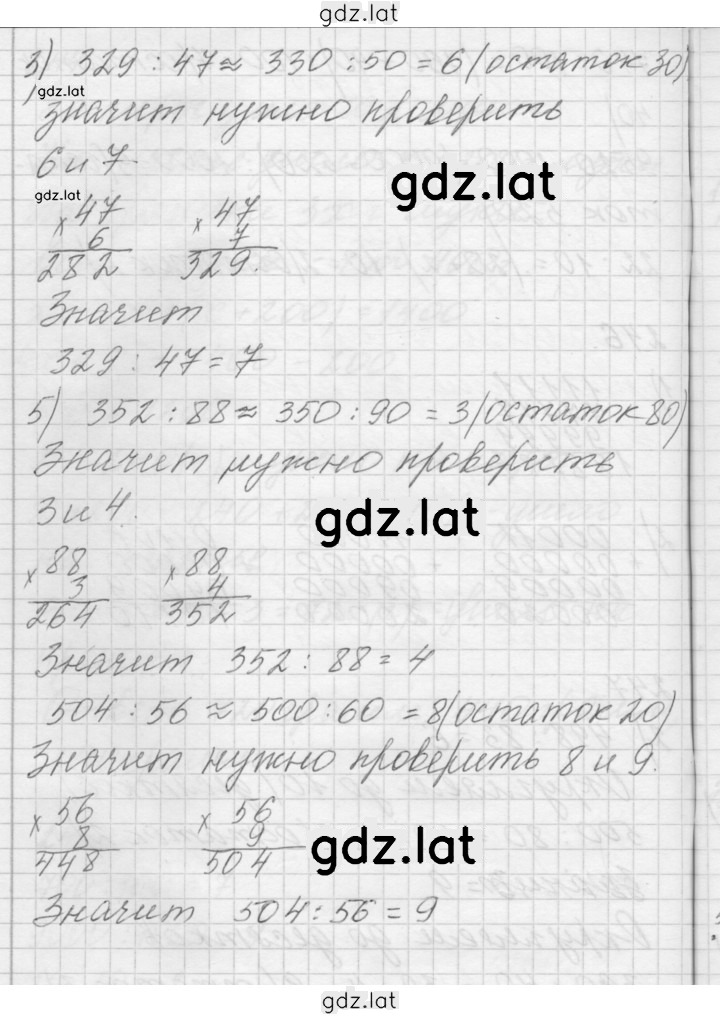 gdz.lat
3) 329 : 47 ≈ 330 : 50 = 6 (остаток 30)
gdz.lat
значит нужно проверить
6 и 7
gdz.lat
gdz.lat
× 47 × 47
6 7
282 329.
Значит
329 : 47 = 7
5) 352 : 88 ≈ 350 : 90 = 3 (остаток 80)
Значит нужно проверить
3 и 4.
gdz.lat
× 88 × 88
3 4
264 352
Значит 352 : 88 = 4
504 : 56 ≈ 500 : 60 = 8 (остаток 20)
Значит нужно проверить 8 и 9.
× 56 × 56
8 9
448 504
gdz.lat
Значит 504 : 56 = 9
gdz.lat